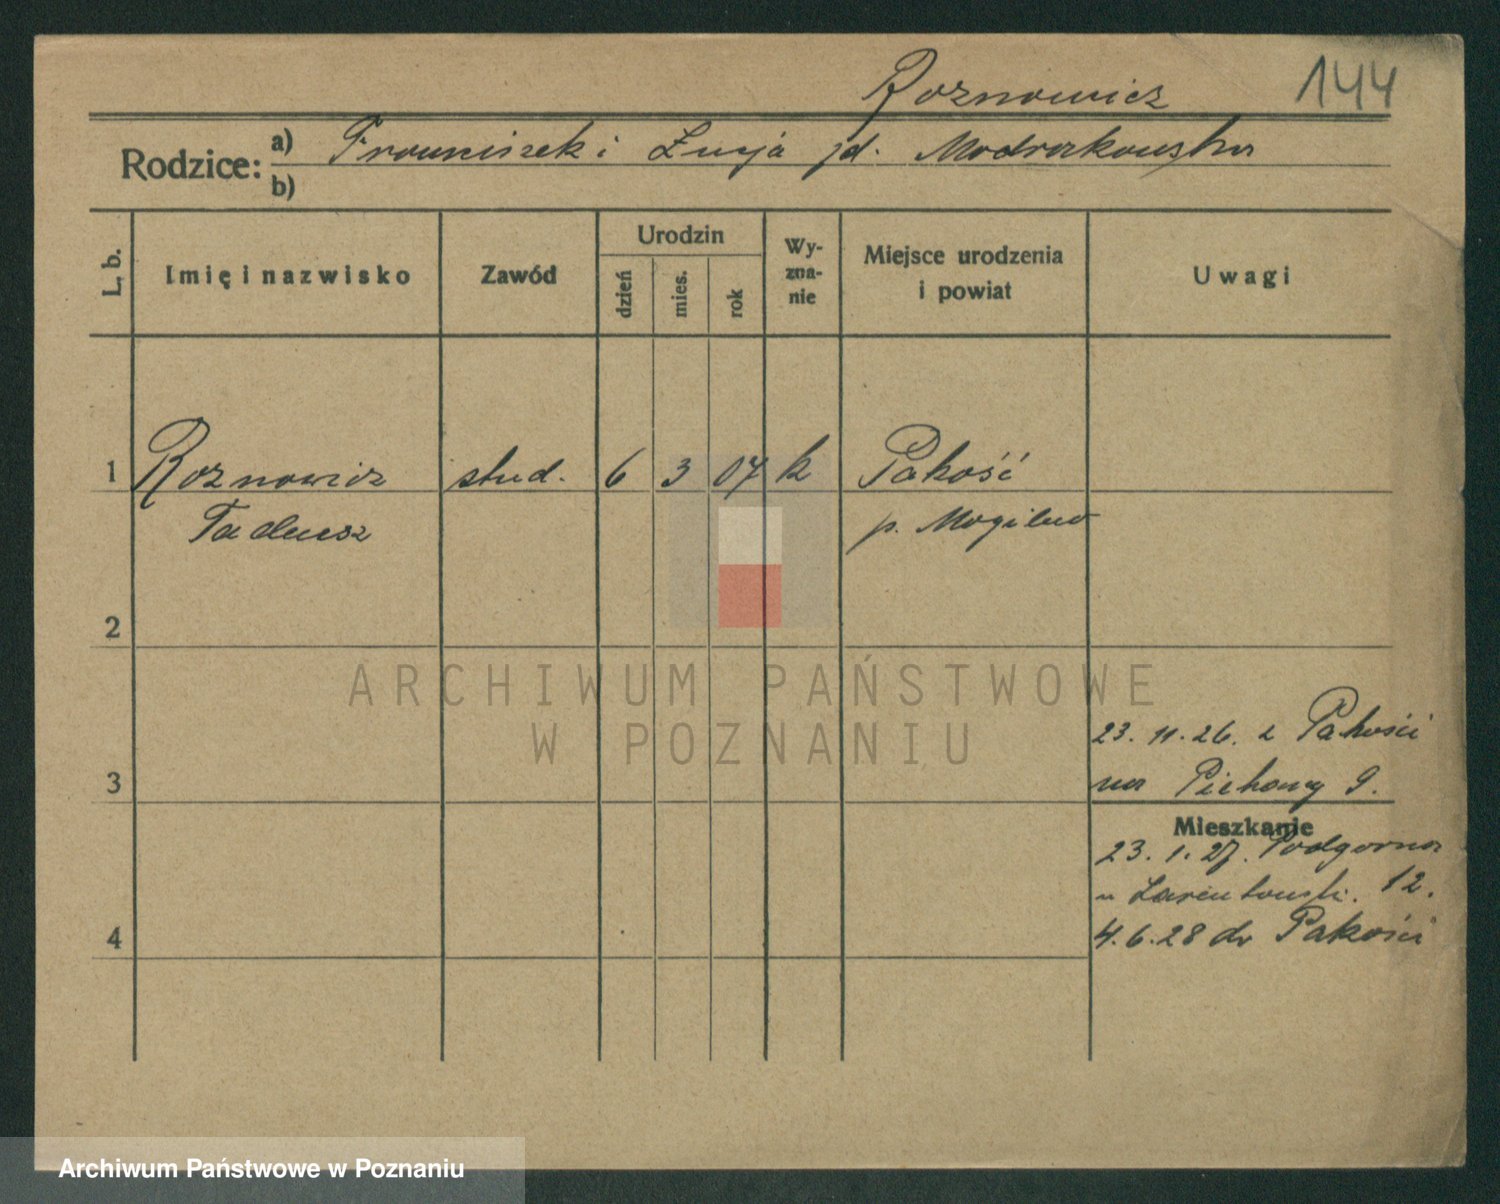 Roznowicz 144
Rodzice: a) Franciszek i Łucja zd. Modrzakowska
b)
L. b. Imię i nazwisko Zawód Urodzin dzień mies. rok Wy-zna-nie Miejsce urodzenia i powiat Uwagi
1 Roznowicz stud. 6 3 07 k Pakość
Tadeusz p. Mogilno
2
ARCHIWUM PAŃSTWOWE
W POZNANIU
23. 11. 26. z Pakości
3 na 9.
Mieszkanie
23. 1. 27. Podgórna
u 12.
4 4. 6. 28 do Pakości
Archiwum Państwowe w Poznaniu